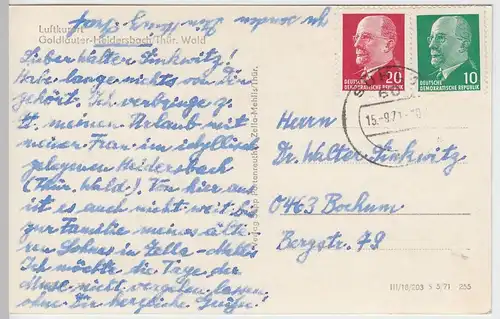 Luftkurort
Goldlauter-Heidersbach Thür. Wald
Lieber Walter Sinkwitz!
Habe lange nichts von Dir
gehört. Ich verbringe z.
Zt. meinen Urlaub mit
meiner Frau im idyllisch
gelegenen Heidersbach
(Thür. Wald). Von hier aus
ist es auch nicht weit bis
zur Familie meines älte-
ren Sohnes in Zella-Mehlis
Ich möchte die Tage der
Muse nicht vergehen lassen,
ohne Dir herzliche Grüße
zu senden
Zella-Mehlis/Thür.
DEUTSCHE
DEMOKRATISCHE REPUBLIK
20
DEUTSCHE
DEMOKRATISCHE REPUBLIK
10
15.-9.71
Herrn
Dr. Walter Sinkwitz
0463 Bochum
Bergstr. 79
III/18/203 5 5/71 255